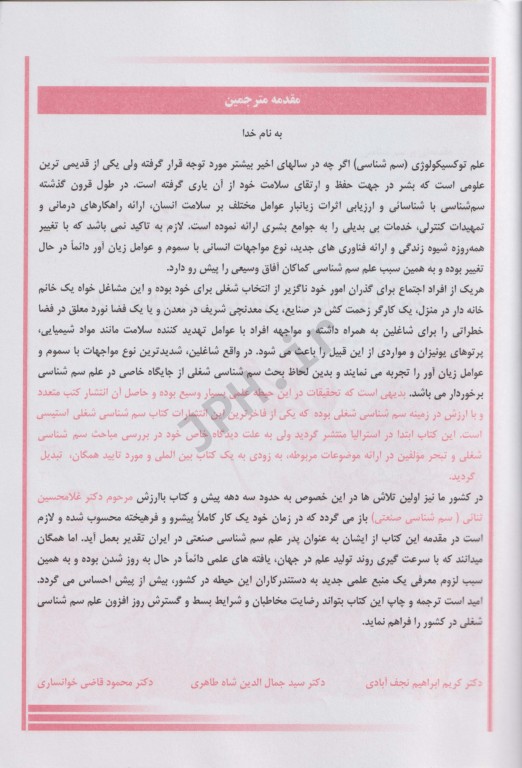 مقدمه مترجمین
به نام خدا
علم توکسیکولوژی (سم شناسی) اگر چه در سالهای اخیر بیشتر مورد توجه قرار گرفته ولی یکی از قدیمی ترین
علومی است که بشر در جهت حفظ و ارتقای سلامت خود از آن یاری گرفته است. در طول قرون گذشته
سم‌شناسی با شناسائی و ارزیابی اثرات زیانبار عوامل مختلف بر سلامت انسان، ارائه راهکارهای درمانی و
تمهیدات کنترلی، خدمات بی بدیلی را به جوامع بشری ارائه نموده است. لازم به تاکید نمی باشد که با تغییر
همه‌روزه شیوه زندگی و ارائه فناوری های جدید، نوع مواجهات انسانی با سموم و عوامل زیان آور دائماً در حال
تغییر بوده و به همین سبب علم سم شناسی کماکان آفاق وسیعی را پیش رو دارد.
هریک از افراد اجتماع برای گذران امور خود ناگزیر از انتخاب شغلی برای خود بوده و این مشاغل خواه یک خانم
خانه دار در منزل، یک کارگر زحمت کش در صنایع، یک معدنچی شریف در معدن و یا یک فضا نورد معلق در فضا
خطراتی را برای شاغلین به همراه داشته و مواجهه افراد با عوامل تهدید کننده سلامت مانند مواد شیمیایی،
پرتوهای یونیزان و مواردی از این قبیل را باعث می شود. در واقع شاغلین، شدیدترین نوع مواجهات با سموم و
عوامل زیان آور را تجربه می نمایند و بدین لحاظ بحث سم شناسی شغلی از جایگاه خاصی در علم سم شناسی
برخوردار می باشد. بدیهی است که تحقیقات در این حیطه علمی بسیار وسیع بوده و حاصل آن انتشار کتب متعدد
و با ارزش در زمینه سم شناسی شغلی بوده که یکی از فاخرترین این انتشارات کتاب سم شناسی شغلی استیسی
است. این کتاب ابتدا در استرالیا منتشر گردید ولی به علت دیدگاه خاص خود در بررسی مباحث سم شناسی
شغلی و تبحر مؤلفین در ارائه موضوعات مربوطه، به زودی به یک کتاب بین المللی و مورد تایید همگان، تبدیل
گردید.
در کشور ما نیز اولین تلاش ها در این خصوص به حدود سه دهه پیش و کتاب باارزش مرحوم دکتر غلامحسین
ثنائی ( سم شناسی صنعتی) باز می گردد که در زمان خود یک کار کاملاً پیشرو و فرهیخته محسوب شده و لازم
است در مقدمه این کتاب از ایشان به عنوان پدر علم سم شناسی صنعتی در ایران تقدیر بعمل آید. اما همگان
میدانند که با سرعت گیری روند تولید علم در جهان، یافته های علمی دائماً در حال به روز شدن بوده و به همین
سبب لزوم معرفی یک منبع علمی جدید به دستندرکاران این حیطه در کشور، بیش از پیش احساس می گردد.
امید است ترجمه و چاپ این کتاب بتواند رضایت مخاطبان و شرایط بسط و گسترش روز افزون علم سم شناسی
شغلی در کشور را فراهم نماید.
دکتر کریم ابراهیم نجف آبادی دکتر سید جمال الدین شاه طاهری دکتر محمود قاضی خوانساری
JPH.ir